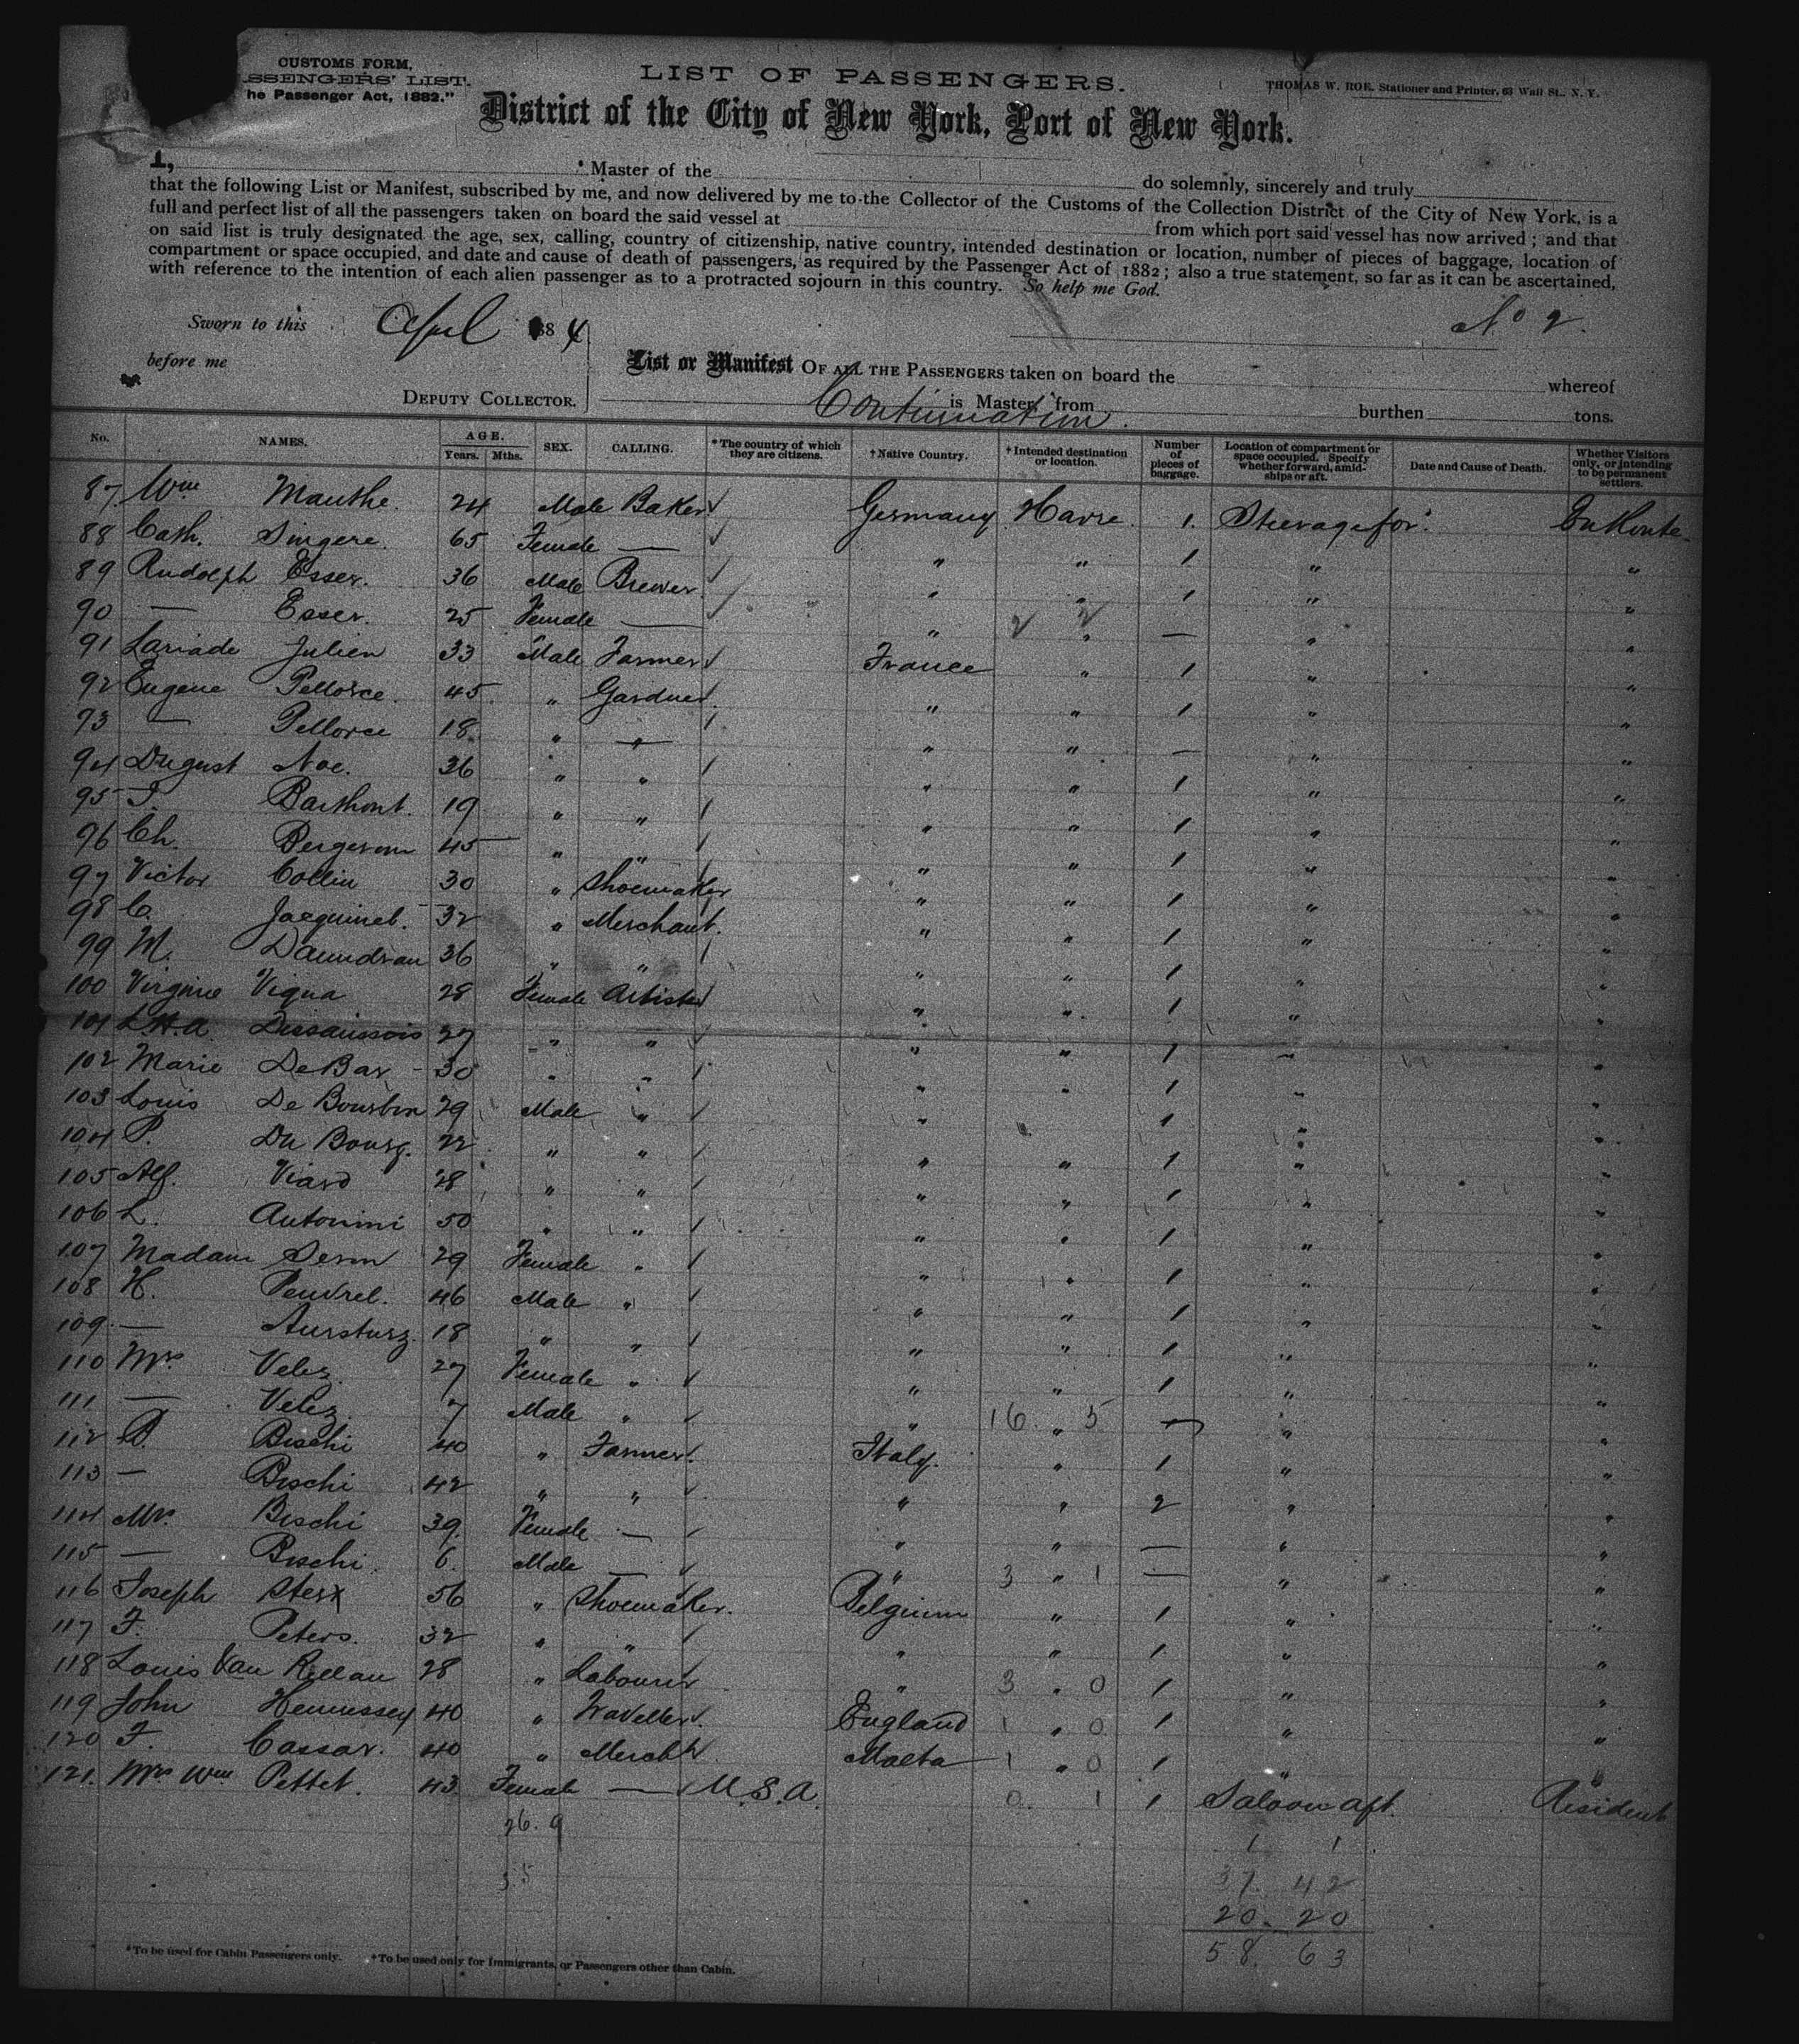 CUSTOMS FORM.
PASSENGERS' LIST.
he Passenger Act, 1882."
LIST OF PASSENGERS.
THOMAS W. ROE, Stationer and Printer, 63 Wall St., N. Y.
District of the City of New York, Port of New York.
I, Master of the do solemnly, sincerely and truly
that the following List or Manifest, subscribed by me, and now delivered by me to the Collector of the Customs of the Collection District of the City of New York, is a
full and perfect list of all the passengers taken on board the said vessel at from which port said vessel has now arrived; and that
on said list is truly designated the age, sex, calling, country of citizenship, native country, intended destination or location, number of pieces of baggage, location of
compartment or space occupied, and date and cause of death of passengers, as required by the Passenger Act of 1882; also a true statement, so far as it can be ascertained,
with reference to the intention of each alien passenger as to a protracted sojourn in this country. So help me God.
Sworn to this April 1884
No 2.
before me
List or Manifest OF ALL THE PASSENGERS taken on board the whereof
DEPUTY COLLECTOR.
is Master, from burthen tons.
Continuation.
No. NAMES. AGE. Years. Mths. SEX. CALLING. *The country of which they are citizens. †Native Country. †Intended destination or location. Number of pieces of baggage. Location of compartment or space occupied. Specify whether forward, amidships or aft. Date and Cause of Death. Whether Visitors only, or intending to be permanent settlers.
87. Wm Manthe. 24 Male Baker Germany Havre. 1. Steerage for. En Route.
88 Cath. Singere. 65 Female — " " 1 " "
89 Rudolph Esser. 36 Male Brewer. " " 1 " "
90 — Esser. 25 Female — " 2 " 2 — " "
91 Lariade Julien 33 Male Farmer France " 1 " "
92 Eugene Pellorce. 45 " Gardner. " " 1 " "
93 — Pellorce 18. " " " " — " "
94 August Noe. 36 " " " " 1 " "
95 J. Barthont. 19 " " " " 1 " "
96 Ch. Bergerom 45 " " " " 1 " "
97 Victor Collin 30 " Shoemaker " " 1 " "
98 C. Jacquinet. 32 " Merchant. " " 1 " "
99 M. Daumdran 36 " " " " 1 " "
100 Virginie Viqua 28 Female Artiste " " 1 " "
101 L.H.A. Dussaussois 27 " " " " 1 " "
102 Marie DeBar 30 " " " " 1 " "
103 Louis De Bourbon 29 Male " " " 1 " "
104 P. Du Bourg. 22 " " " " 1 " "
105 Alf. Viard 28 " " " " 1 " "
106 L. Antonini 50 " " " " 1 " "
107 Madam Serin 29 Female " " " 1 " "
108 H. Pendrel. 46 Male " " " 1 " "
109 — Aursturz. 18 " " " " 1 " "
110 Mrs Velez. 27 Female " " " 1 " "
111 — Velez. 7 Male " " 16 " 5 — " "
112 B. Bischi 40 " Farmer. Italy. " 1 " "
113 — Bischi 42 " " " " 2 " "
114 Mrs. Bischi 39. Female — " " — " "
115 — Bischi. 6. Male — " 3 " 1 — " "
116 Joseph Sterx 56 " Shoemaker. Belgium " 1 " "
117 F. Peters. 32 " " " " 1. " "
118 Louis Van Rillau 28 " Labourer " 3 " 0 1 " "
119 John Hennessey 40 " Traveller. England 1 " 0 1 " "
120 F. Cassar. 40 " Mercht. Malta 1 " 0 1 " "
121. Mrs Wm Pettet. 43. Female — U.S.A. 0. 1 1 Saloon aft. Resident
26. 9
1 1
35
37. 42
20. 20
58. 63
*To be used for Cabin Passengers only. †To be used only for Immigrants, or Passengers other than Cabin.